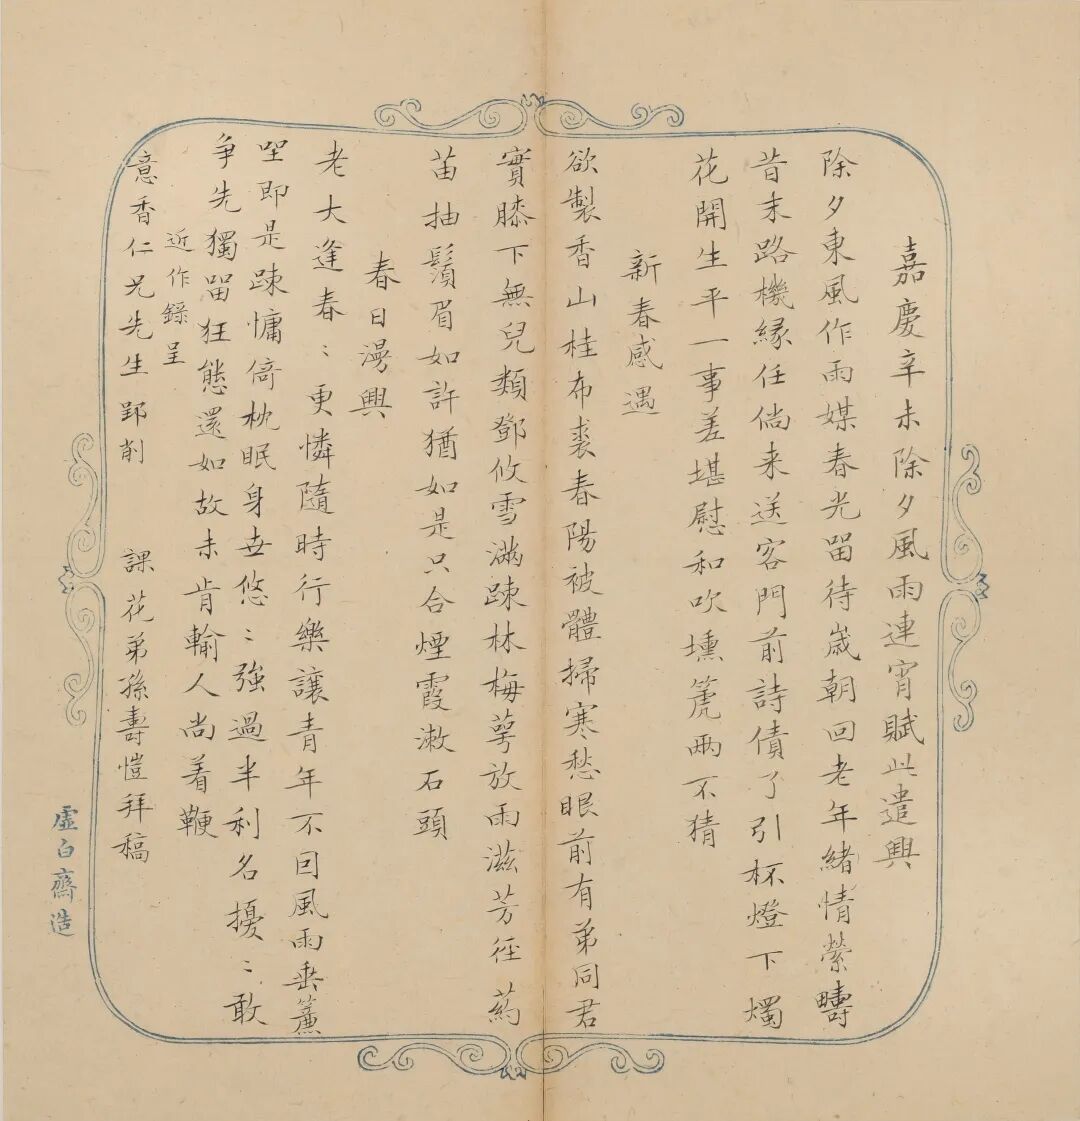 嘉慶辛未除夕風雨連宵賦此遣興
除夕東風作雨媒春光畱待歲朝回老年緒情縈疇
昔末路機緣任倘来送客門前詩債了引杯燈下燭
花開生平一事差堪慰和吹壎篪兩不猜
新春感遇
欲製香山桂布裘春陽被體掃寒愁眼前有弟同君
實膝下無兒類鄧攸雪滿踈林梅萼放雨滋芳徑葯
苗抽鬚眉如許猶如是只合煙霞漱石頭
春日漫興
老大逢春〻更憐隨時行樂讓青年不回風雨垂簾
坐即是踈慵倚枕眠身世悠〻強過半利名擾〻敢
爭先獨畱狂態還如故未肯輸人尚着鞭
近作錄呈
意香仁兄先生郢削
課花弟孫壽愷拜稿
虛白齋造